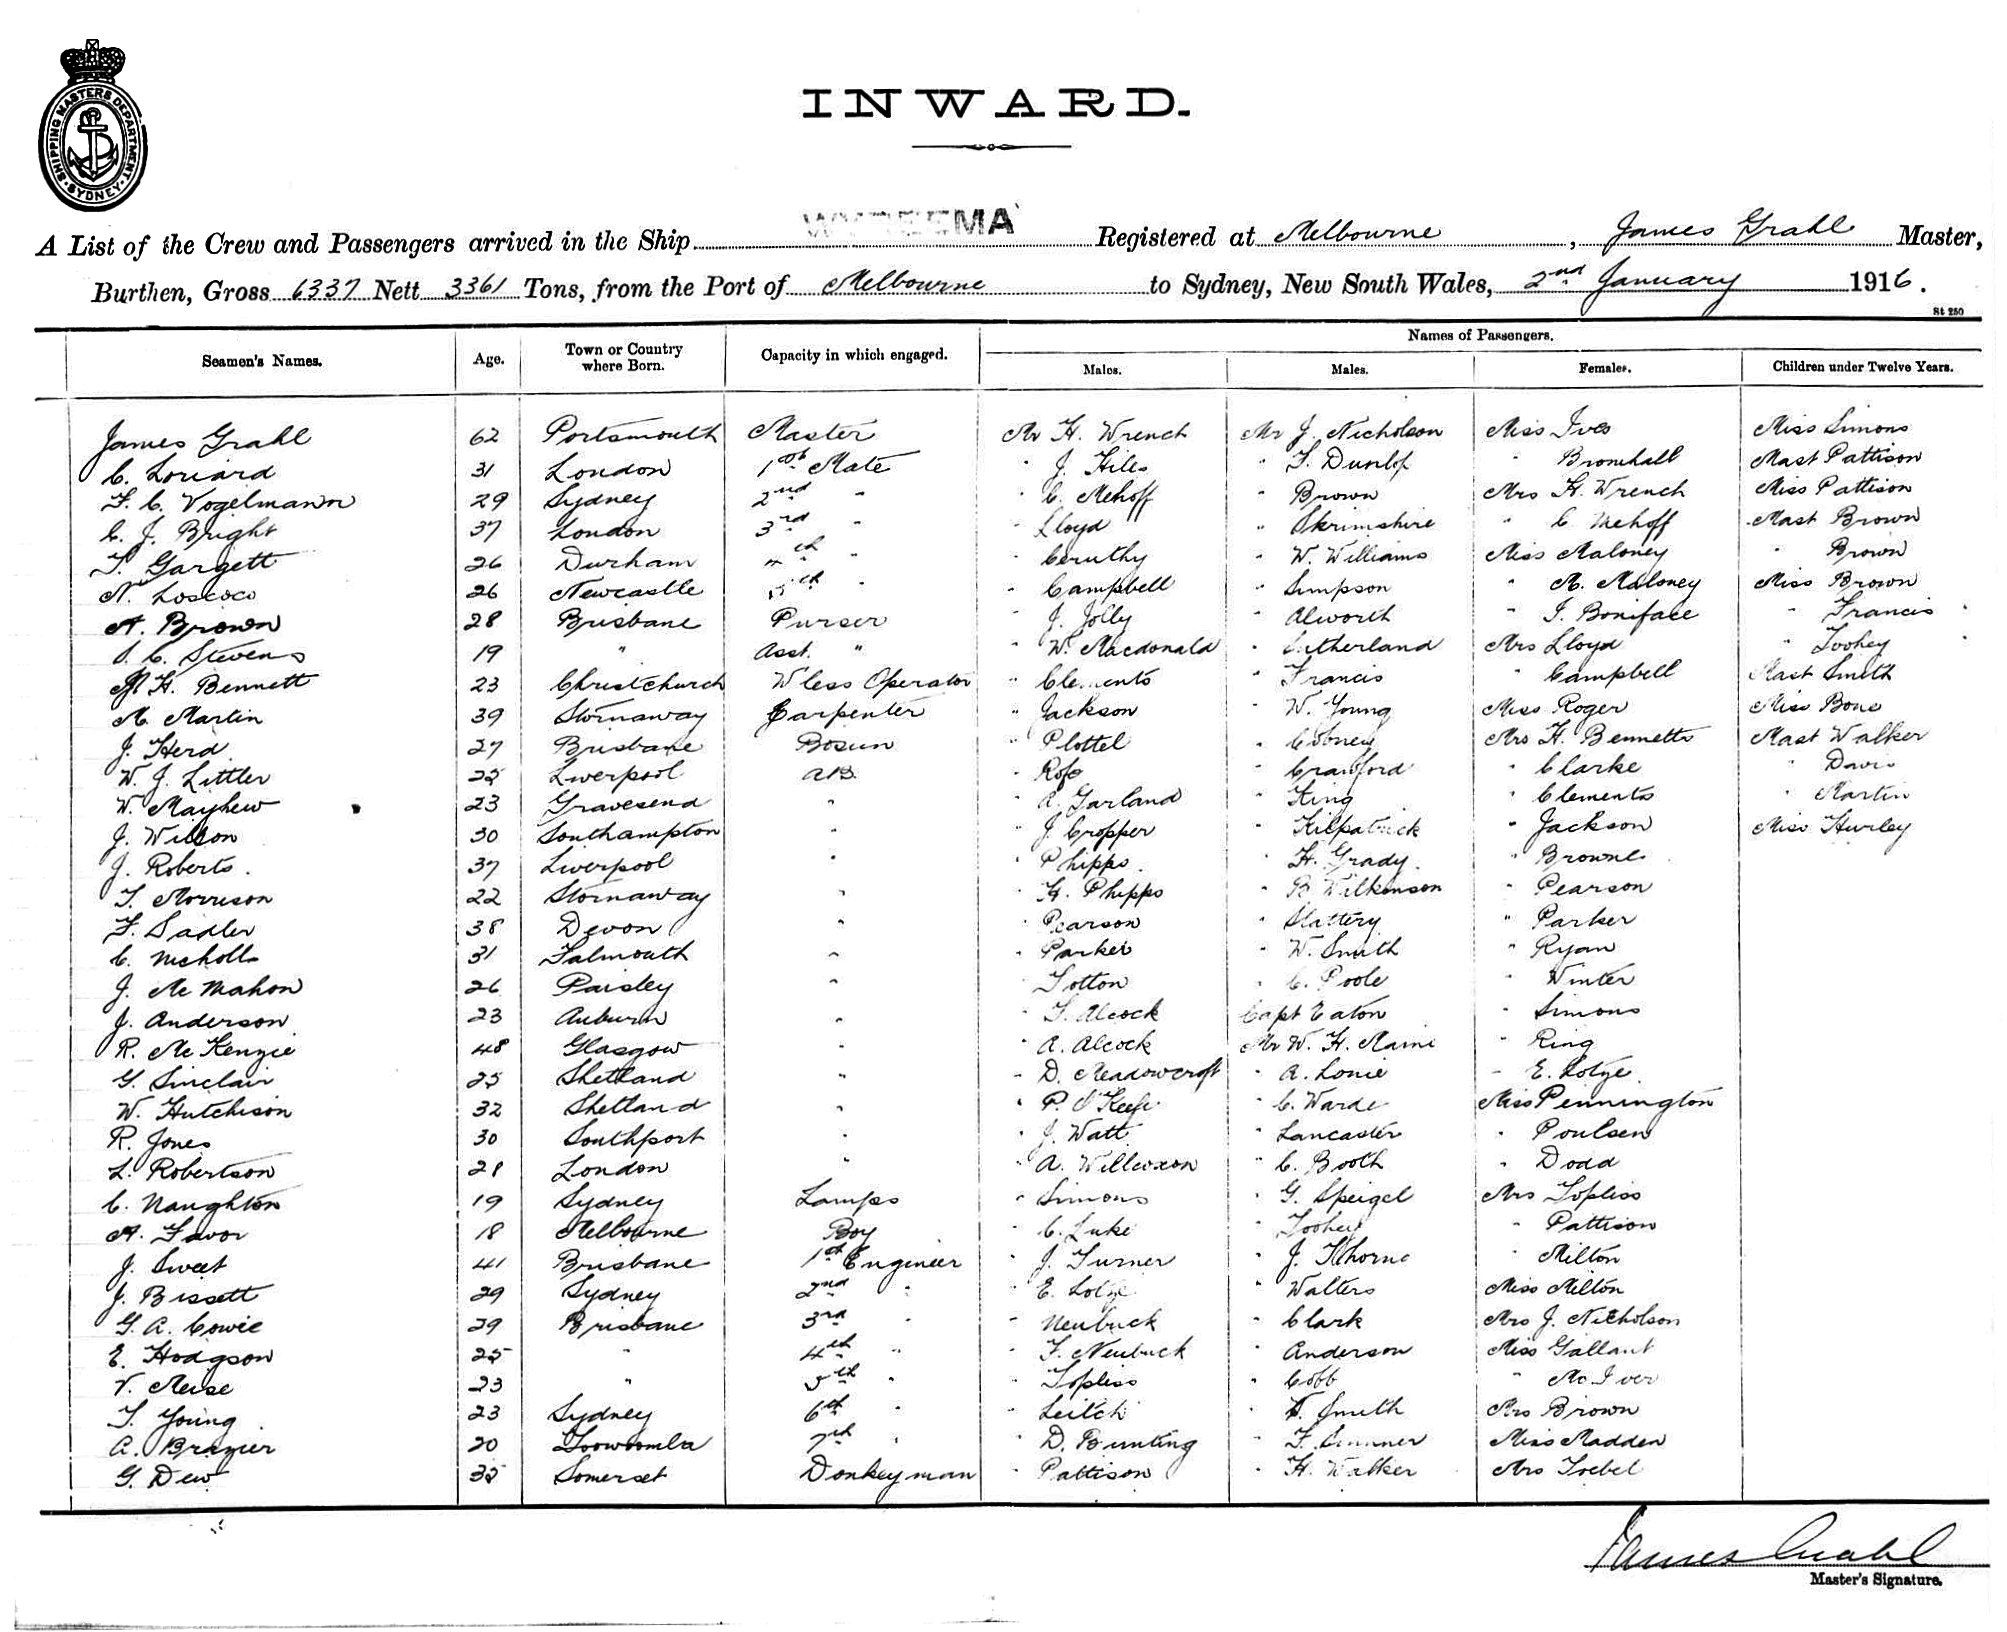 SHIPPING MASTERS DEPARTMENT · SYDNEY ·
INWARD.
A List of the Crew and Passengers arrived in the Ship WYREEMA Registered at Melbourne, James Grahl Master,
Burthen, Gross 6337 Nett 3361 Tons, from the Port of Melbourne to Sydney, New South Wales, 2nd January 1916.
St 250
Seamen's Names. Age. Town or Country where Born. Capacity in which engaged. Names of Passengers.
Males. Males. Females. Children under Twelve Years.
James Grahl 62 Portsmouth Master Mr H. Wrench Mr J. Nicholson Miss Ives Miss Simons
C. Loriard 31 London 1st Mate " J. Hiles " F. Dunlop " Bromhall Mast Pattison
F. C. Vogelmann 29 Sydney 2nd " " C. Mehoff " Brown Mrs H. Wrench Miss Pattison
C. J. Bright 37 London 3rd " " Lloyd " Skrimshire " C. Mehoff Mast Brown
T. Gargett 26 Durham " " Ceruthy " W. Williams Miss Maloney " Brown
N. Loscoco 26 Newcastle " " Campbell " Simpson " M. Maloney Miss Brown
A. Brown 28 Brisbane Purser " J. Jolly " Alworth " I. Boniface " Francis
C. Stevens 19 " Asst. " " W. Macdonald " Sutherland Mrs Lloyd " Toohey
H. Bennett 23 Christchurch Wless Operator " Clements " Francis " Campbell Mast Smith
M. Martin 39 Stornaway Carpenter " Jackson " W. Young Miss Roger Miss Bone
J. Herd 27 Brisbane Bosun " Plottel " Cooney Mrs H. Bennetts Mast Walker
W. J. Littler 25 Liverpool AB. " Rofe " Crawford " Clarke " Davis
W. Mayhew 23 Gravesend " " A. Garland " King " Clements " Martin
J. Wilson 30 Southampton " " J. Cropper " Kilpatrick " Jackson Miss Hurley
J. Roberts. 37 Liverpool " " Phipps. " H. Grady. " Browne
T. Morrison 22 Stornaway " " H. Phipps " B. Wilkinson " Pearson
F. Sadler 38 Devon " " Pearson " Slattery " Parker
C. Nicholls 31 Falmouth " " Parker " W. Smith " Ryan
J. McMahon 26 Paisley " " Totton " C. Poole " Winter
J. Anderson 23 Auburn " " T. Alcock Capt Eaton " Simons
R. McKenzie 48 Glasgow " " A. Alcock Mr W. H. Maine " King
G. Sinclair 25 Shetland " " D. Meadowcroft " A. Lonie " E. Lotze
W. Hutchison 32 Shetland " " P. O'Keefe " C. Warde Miss Pennington
R. Jones 30 Southport " " J. Watt " Lancaster " Poulsen
L. Robertson 28 London " " A. Willcoxon " C. Booth " Dodd
C. Naughton 19 Sydney Lamps " Simons " G. Speigel Mrs Topliss
A. Favor 18 Melbourne Boy " C. Luke " Toohey " Pattison
J. Sweet 41 Brisbane 1st Engineer " J. Turner " J. Thorne " Milton
J. Bissett 29 Sydney 2nd " " E. Lotze " Walters Miss Milton
G. A. Cowie 29 Brisbane 3rd " " Neubuck " Clark Mrs J. Nicholson
E. Hodgson 25 " 4th " " F. Neubuck " Anderson Miss Gallant
V. Meise 23 " 5th " " Topliss " Cobb " McIver
T. Young 23 Sydney 6th " " Leitch " Smith Mrs Brown
A. Brazier 20 Toowoomba 7th " " D. Bunting " F. Miss Madden
G. Dew 35 Somerset Donkeyman " Pattison " H. Walker Mrs Troebel
James Grahl
Master's Signature.